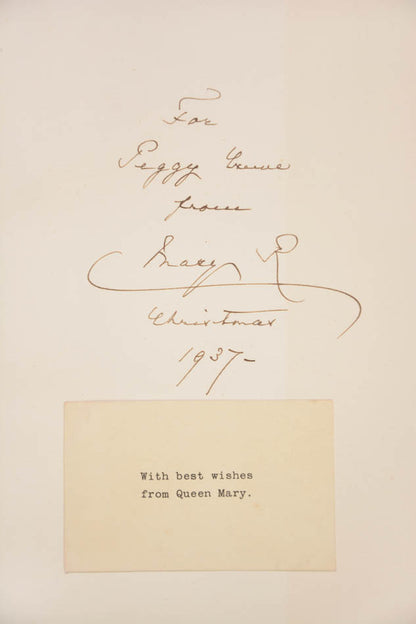 For
Peggy Crewe
from
Mary R
Christmas
1937-
With best wishes
from Queen Mary.